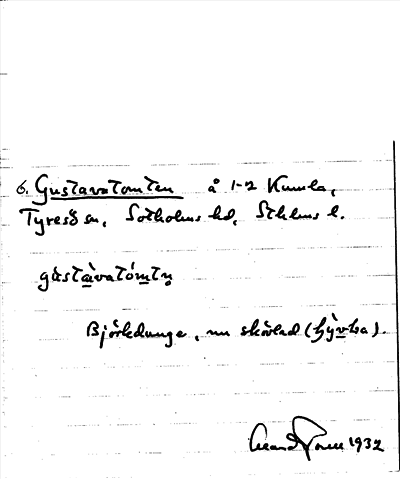 6. Gustavatomten å 1-2 Kumla,
Tyresö sn, Sotholms hd, Sthlms l.
gustavatomtn
Björkdunge, nu skövlad
1932